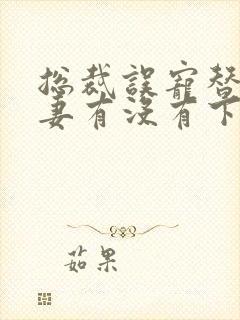 总裁误宠替
妻有没有下
茹果